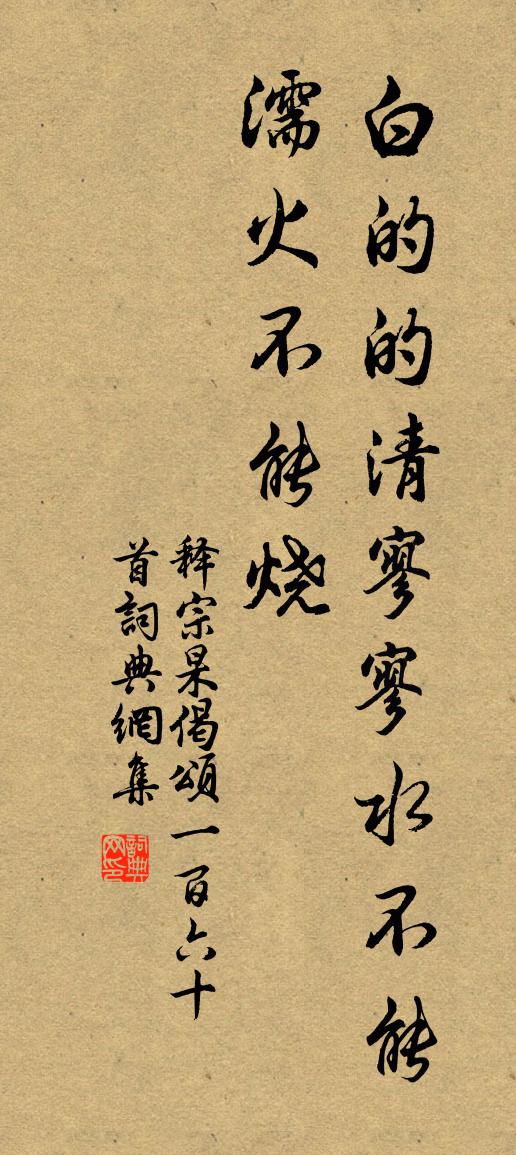 白的的清寥寥水不能
濡火不能烧
释宗杲偈頌一百六十
首詞典網集
詞典网印